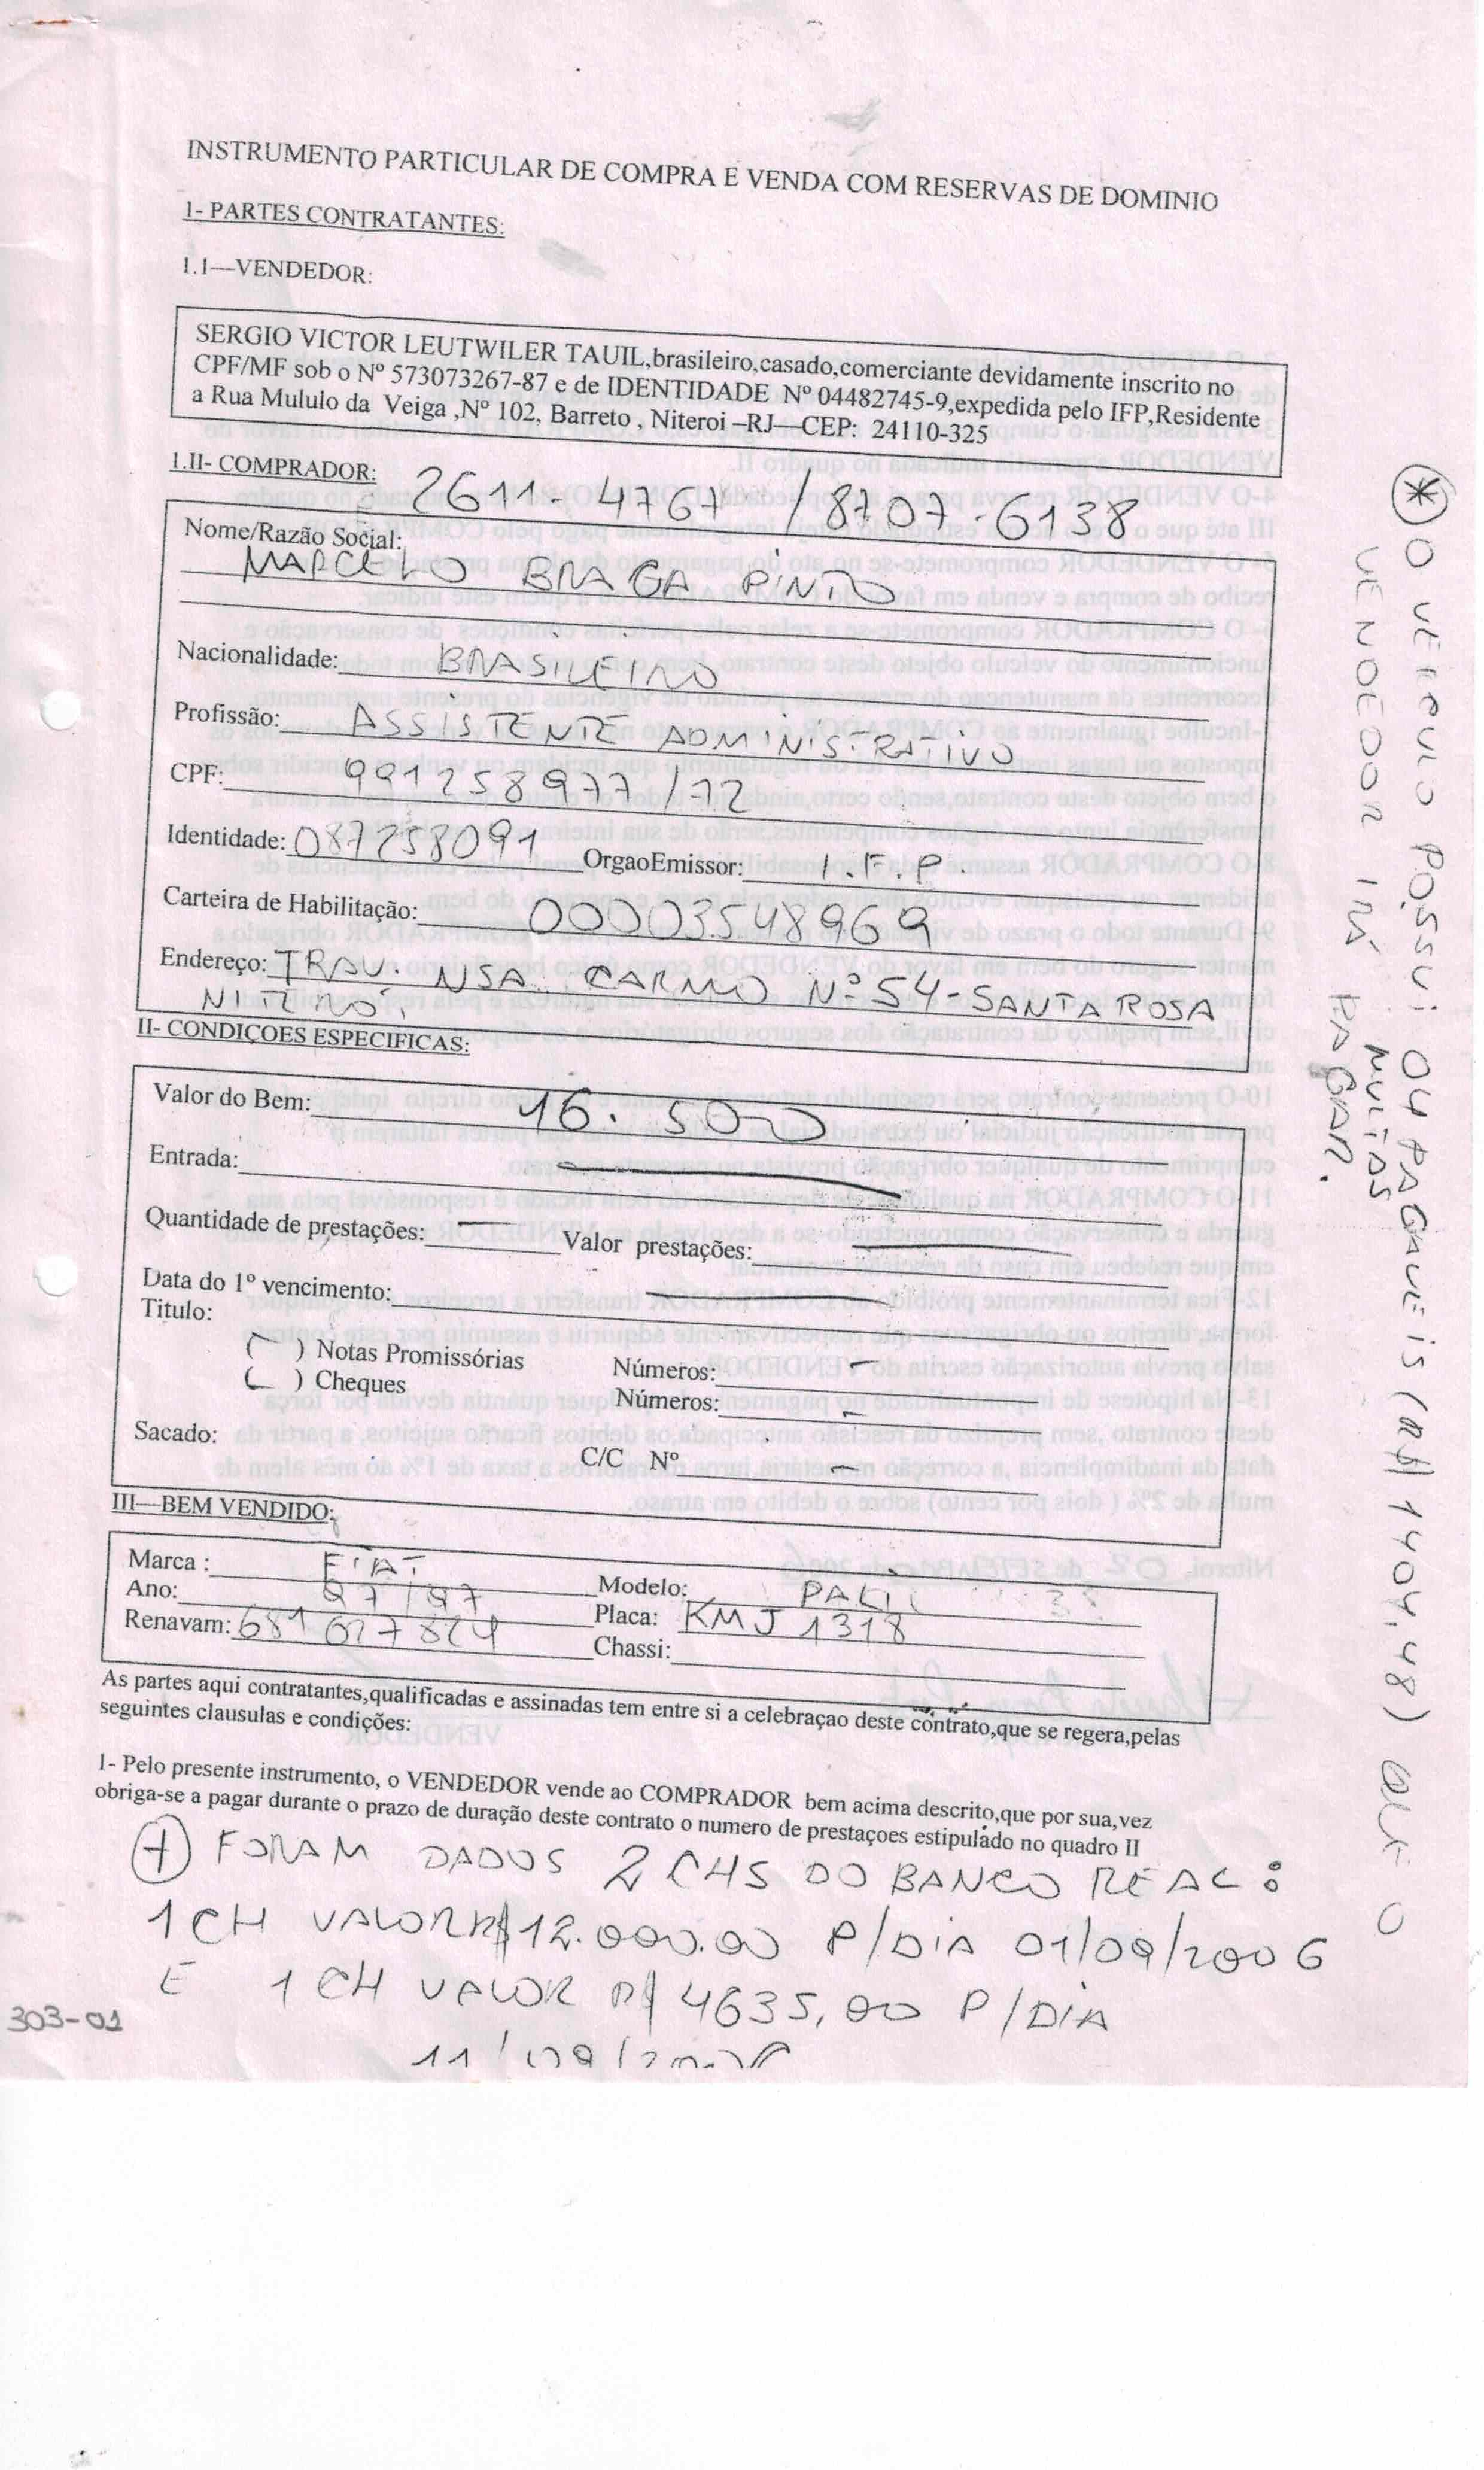 INSTRUMENTO PARTICULAR DE COMPRA E VENDA COM RESERVAS DE DOMINIO
1- PARTES CONTRATANTES:
1.I—VENDEDOR:
SERGIO VICTOR LEUTWILER TAUIL,brasileiro,casado,comerciante devidamente inscrito no
CPF/MF sob o Nº 573073267-87 e de IDENTIDADE Nº 04482745-9,expedida pelo IFP,Residente
a Rua Mululo da Veiga ,Nº 102, Barreto , Niteroi –RJ—CEP: 24110-325
1.II- COMPRADOR: 2611-4767 / 8707-6138
Nome/Razão Social:
MARCELO BRAGA PINTO
Nacionalidade: BRASILEIRO
Profissão: ASSISTENTE ADMINISTRATIVO
CPF: 991258977/72
Identidade: 087258091 OrgaoEmissor: I.F.P.
Carteira de Habilitação: 00003548969
Endereço: TRAV. NSA. CARMO Nº 54-SANTA ROSA
NITERÓI
II- CONDIÇOES ESPECIFICAS:
Valor do Bem: 16.500
Entrada:
Quantidade de prestações: — Valor prestações: —
Data do 1º vencimento: —
Titulo:
( ) Notas Promissórias Números: —
( ) Cheques Números: —
Sacado: C/C Nº —
III—BEM VENDIDO:
Marca : FIAT Modelo: PALIO
Ano: 97/97 Placa: KMJ 1318
Renavam: 681027824 Chassi:
As partes aqui contratantes,qualificadas e assinadas tem entre si a celebraçao deste contrato,que se regera,pelas
seguintes clausulas e condições:
1- Pelo presente instrumento, o VENDEDOR vende ao COMPRADOR bem acima descrito,que por sua,vez
obriga-se a pagar durante o prazo de duração deste contrato o numero de prestaçoes estipulado no quadro II
+ FORAM DADOS 2 CHS DO BANCO REAL:
1 CH VALOR R$12.000.00 P/DIA 01/09/2006
E 1 CH VALOR R$ 4635,00 P/DIA
11/09/2006
303-01
* O VEICULO POSSUI 04 PAGAVEIS (R$ 1404,48) QUE O
MULTAS
VENDEDOR IRÁ PAGAR.